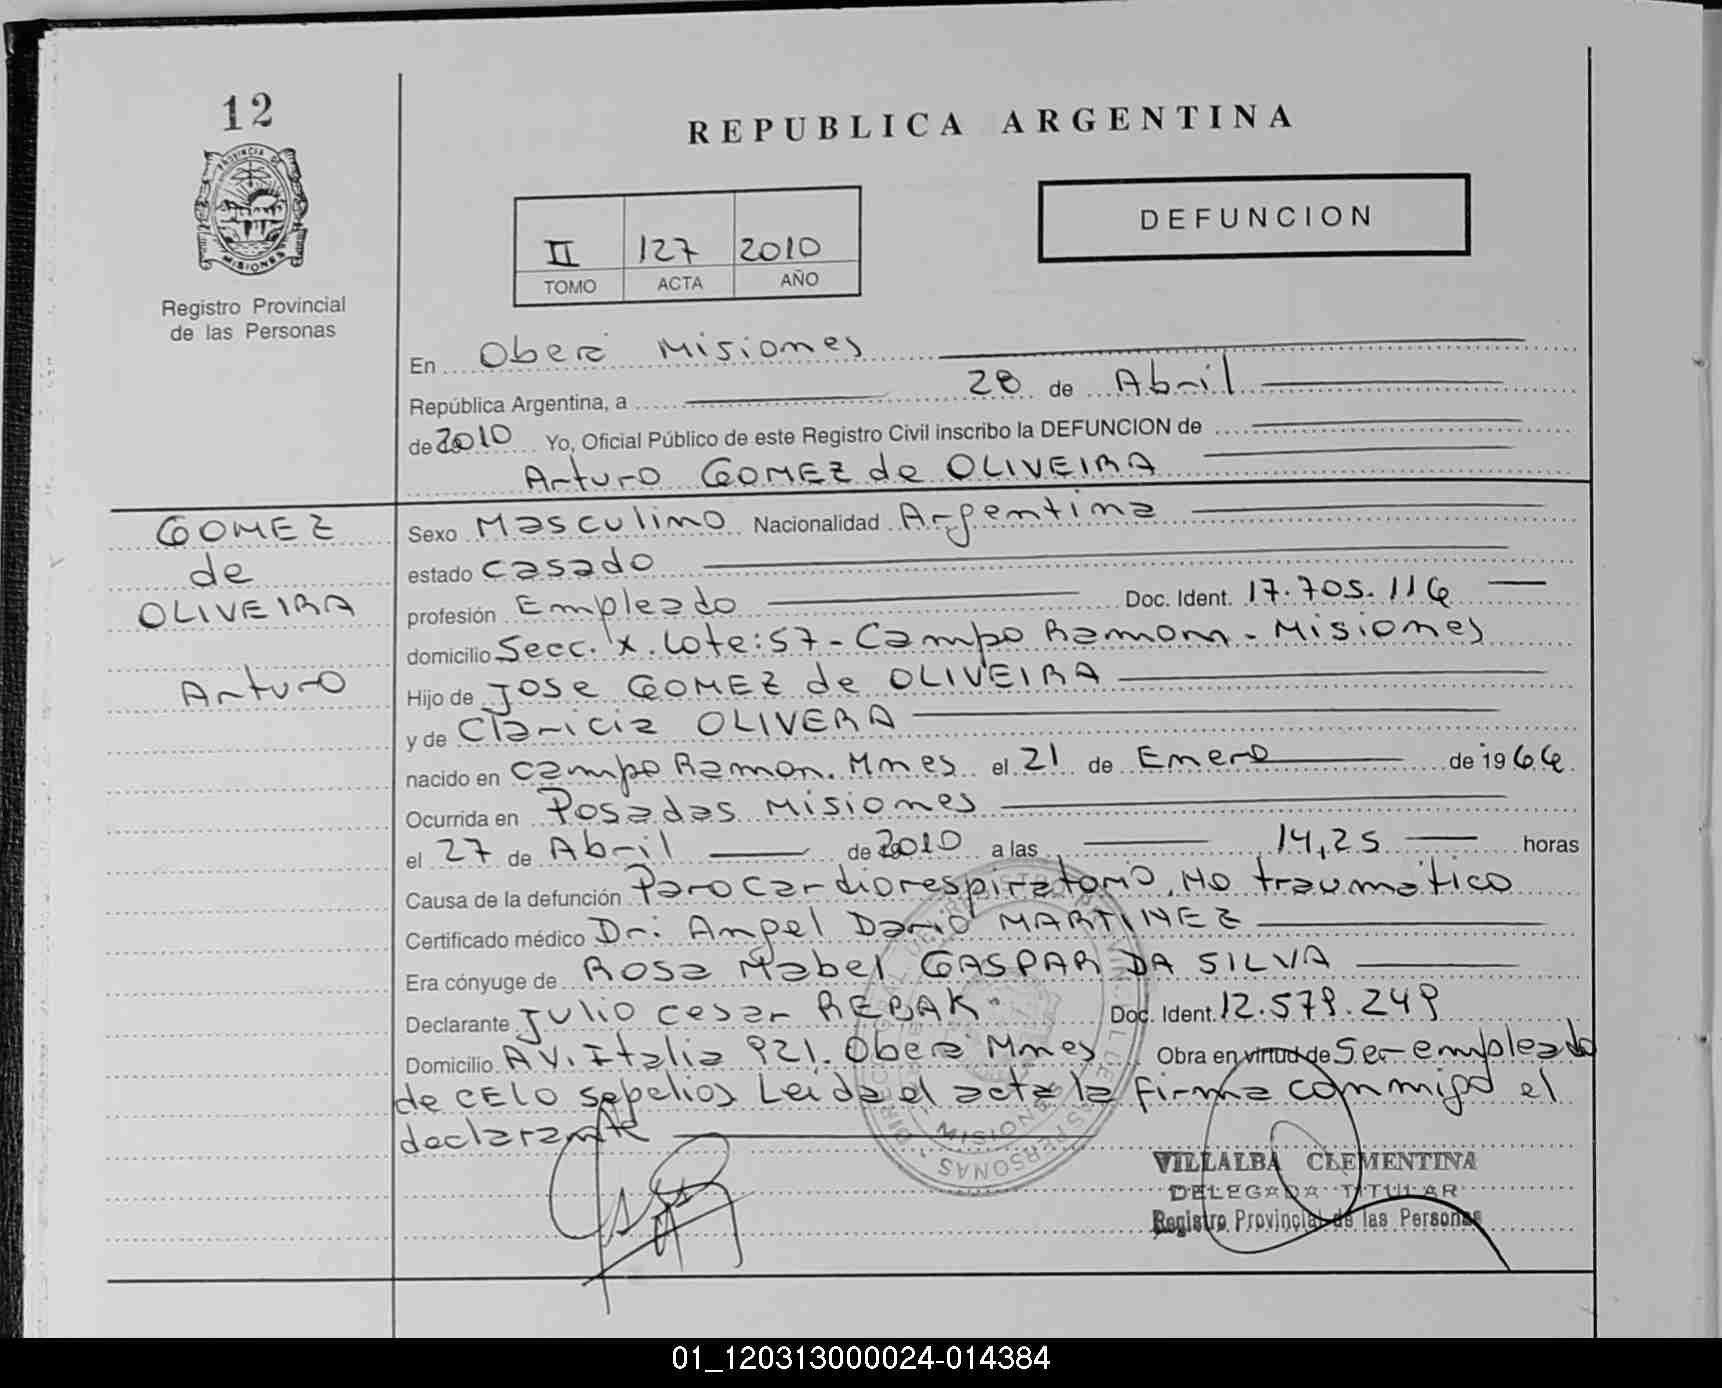 12
PROVINCIA DE
MISIONES
Registro Provincial
de las Personas
REPUBLICA ARGENTINA
II 127 2010
TOMO ACTA AÑO
DEFUNCION
En Oberá Misiones
República Argentina, a 28 de Abril
de 2010 Yo, Oficial Público de este Registro Civil inscribo la DEFUNCION de
Arturo GOMEZ de OLIVEIRA
GOMEZ
de
OLIVEIRA
Arturo
Sexo Masculino Nacionalidad Argentina
estado casado
profesión Empleado Doc. Ident. 17.705.116
domicilio Secc. X. Lote: 57 - Campo Ramon - Misiones
Hijo de Jose GOMEZ de OLIVEIRA
y de Claricia OLIVERA
nacido en Campo Ramon. Mnes el 21 de Enero de 1966
Ocurrida en Posadas Misiones
el 27 de Abril de 2010 a las 14,25 horas
Causa de la defunción Paro cardiorespiratorio, No traumático
Certificado médico Dr: Angel Dario MARTINEZ
Era cónyuge de Rosa Mabel GASPAR DA SILVA
Declarante Julio Cesar REBAK. Doc. Ident. 12.579.249
Domicilio AV. Italia 921. Obera Mnes Obra en virtud de Ser empleado
de CELO sepelios Leida el acta la firma conmigo el
declarante
MISIONES
VILLALBA CLEMENTINA
DELEGADA TITULAR
Registro Provincial de las Personas
01_120313000024-014384